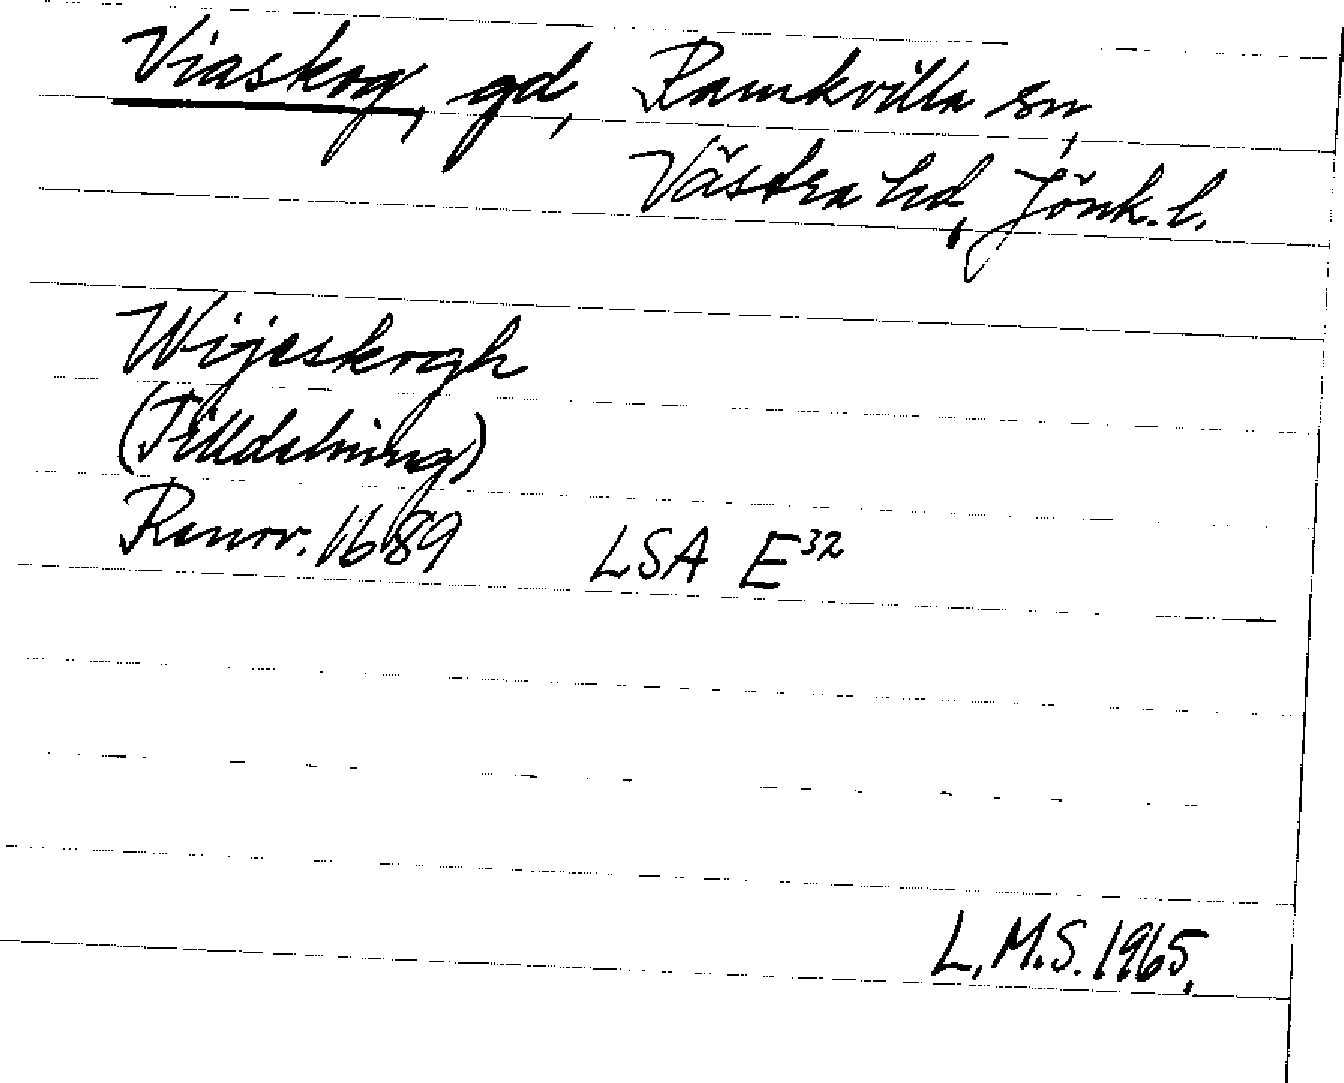 Viaskog, gd, Ramkvilla sn,
Västra hd, Jönk. l.
Wijeskogh
(Tilldelning)
Renov. 1689 LSA E32
L.M.S. 1965.